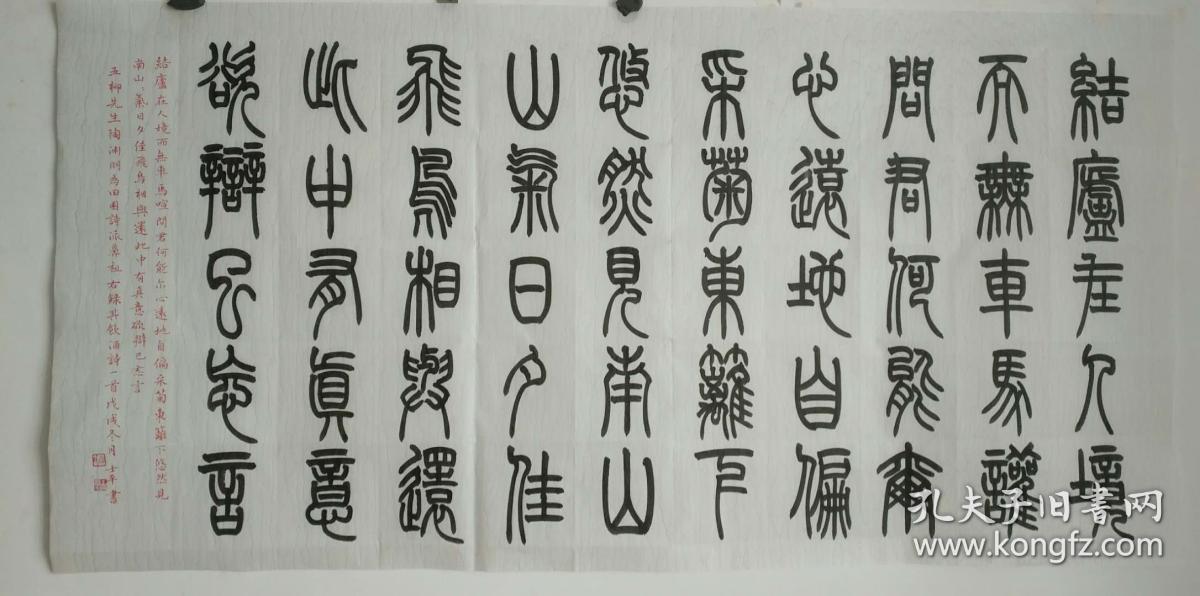 結廬在人境
而無車馬讙
問君何能爾
心遠地自偏
采菊東籬下
悠然見南山
山氣日夕佳
飛鳥相與還
此中有真意
欲辯已忘言
結廬在人境而無車馬喧問君何能尔心遠地自偏采菊東籬下悠然見
南山山氣日夕佳飛鳥相與還此中有真意欲辯已忘言
五柳先生陶渊明為田园詩派鼻祖右録其飲酒詩一首戊戌冬月士平書
孔夫子旧书网
www.kongfz.com